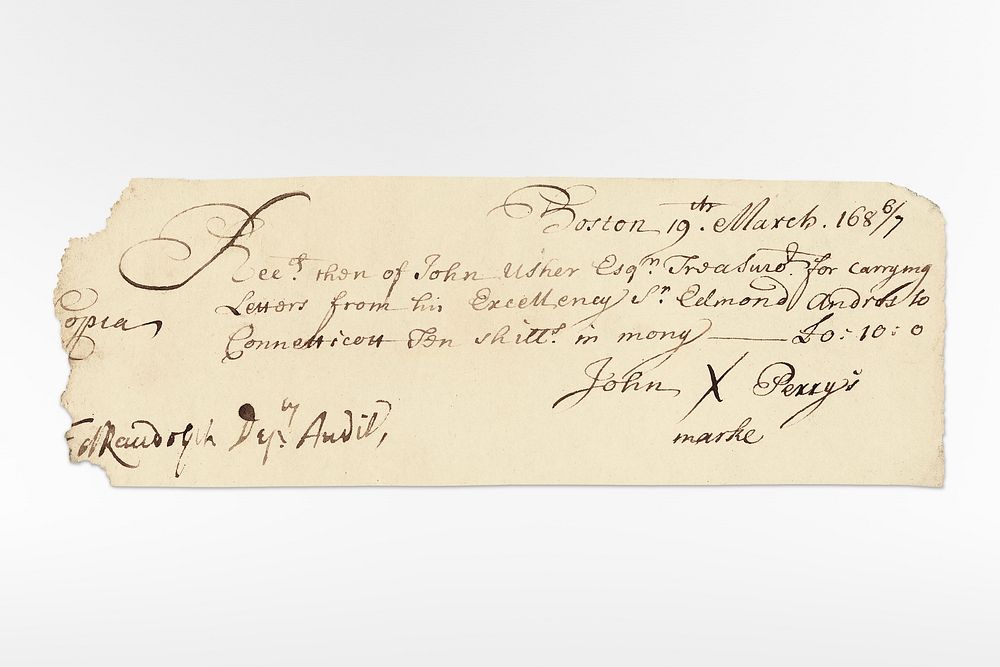 Boston 19th. March. 168 6/7
Recd. then of John Usher Esqr. Treasurr. for carrying
Letters from his Excellency Sr. Edmond Andros to
Connetticott Ten shills. in mony — £0:10:0
John X Perry's
marke
Copia
Ed Randolph Depty. Audit,